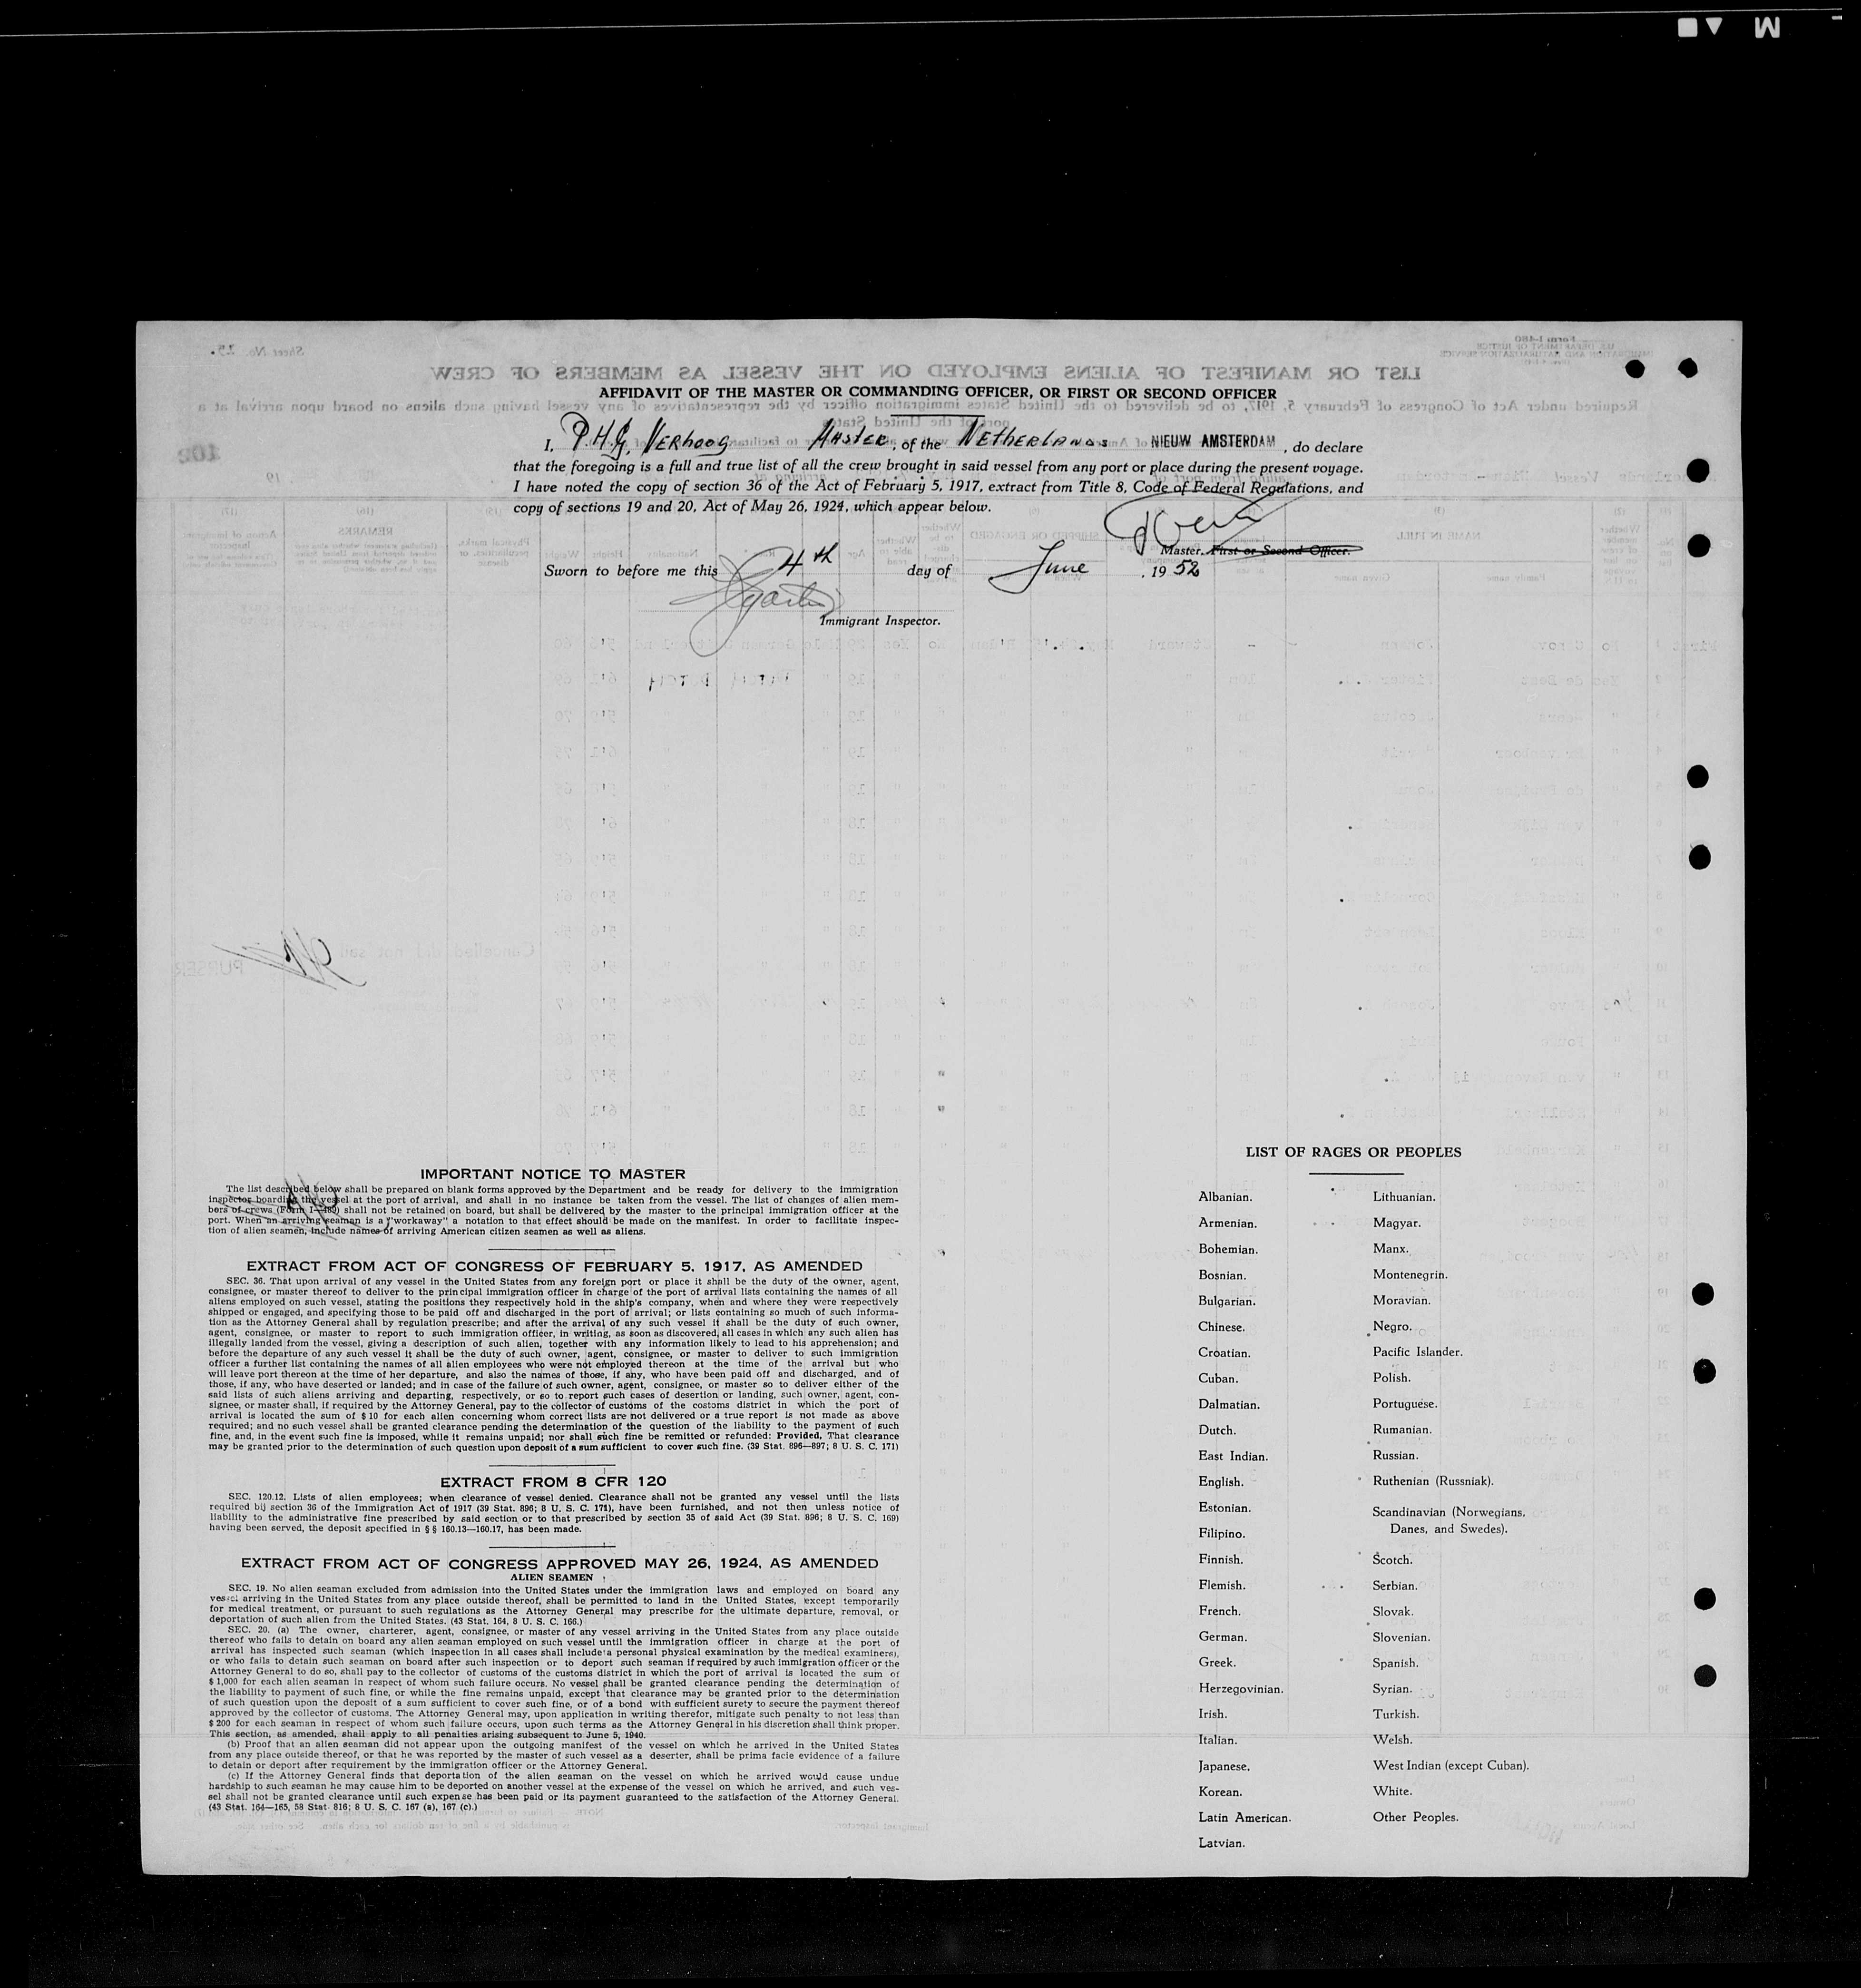 AFFIDAVIT OF THE MASTER OR COMMANDING OFFICER, OR FIRST OR SECOND OFFICER
I, P.H.G. VERHOOG Master, of the NETHERLANDS NIEUW AMSTERDAM, do declare
that the foregoing is a full and true list of all the crew brought in said vessel from any port or place during the present voyage.
I have noted the copy of section 36 of the Act of February 5, 1917, extract from Title 8, Code of Federal Regulations, and
copy of sections 19 and 20, Act of May 26, 1924, which appear below.
Master, First or Second Officer.
Sworn to before me this 4th day of June, 1952
Immigrant Inspector.
IMPORTANT NOTICE TO MASTER
The list described below shall be prepared on blank forms approved by the Department and be ready for delivery to the immigration
inspector boarding the vessel at the port of arrival, and shall in no instance be taken from the vessel. The list of changes of alien mem-
bers of crews (Form I—489) shall not be retained on board, but shall be delivered by the master to the principal immigration officer at the
port. When an arriving seaman is a "workaway" a notation to that effect should be made on the manifest. In order to facilitate inspec-
tion of alien seamen, include names of arriving American citizen seamen as well as aliens.
EXTRACT FROM ACT OF CONGRESS OF FEBRUARY 5, 1917, AS AMENDED
SEC. 36. That upon arrival of any vessel in the United States from any foreign port or place it shall be the duty of the owner, agent,
consignee, or master thereof to deliver to the principal immigration officer in charge of the port of arrival lists containing the names of all
aliens employed on such vessel, stating the positions they respectively hold in the ship's company, when and where they were respectively
shipped or engaged, and specifying those to be paid off and discharged in the port of arrival; or lists containing so much of such informa-
tion as the Attorney General shall by regulation prescribe; and after the arrival of any such vessel it shall be the duty of such owner,
agent, consignee, or master to report to such immigration officer, in writing, as soon as discovered, all cases in which any such alien has
illegally landed from the vessel, giving a description of such alien, together with any information likely to lead to his apprehension; and
before the departure of any such vessel it shall be the duty of such owner, agent, consignee, or master to deliver to such immigration
officer a further list containing the names of all alien employees who were not employed thereon at the time of the arrival but who
will leave port thereon at the time of her departure, and also the names of those, if any, who have been paid off and discharged, and of
those, if any, who have deserted or landed; and in case of the failure of such owner, agent, consignee, or master so to deliver either of the
said lists of such aliens arriving and departing, respectively, or so to report such cases of desertion or landing, such owner, agent, con-
signee, or master shall, if required by the Attorney General, pay to the collector of customs of the costoms district in which the port of
arrival is located the sum of $10 for each alien concerning whom correct lists are not delivered or a true report is not made as above
required; and no such vessel shall be granted clearance pending the determination of the question of the liability to the payment of such
fine, and, in the event such fine is imposed, while it remains unpaid; nor shall such fine be remitted or refunded: Provided, That clearance
may be granted prior to the determination of such question upon deposit of a sum sufficient to cover such fine. (39 Stat. 896—897; 8 U. S. C. 171)
EXTRACT FROM 8 CFR 120
SEC. 120.12. Lists of alien employees; when clearance of vessel denied. Clearance shall not be granted any vessel until the lists
required bij section 36 of the Immigration Act of 1917 (39 Stat. 896; 8 U. S. C. 171), have been furnished, and not then unless notice of
liability to the administrative fine prescribed by said section or to that prescribed by section 35 of said Act (39 Stat. 896; 8 U. S. C. 169)
having been served, the deposit specified in § § 160.13—160.17, has been made.
EXTRACT FROM ACT OF CONGRESS APPROVED MAY 26, 1924, AS AMENDED
ALIEN SEAMEN
SEC. 19. No alien seaman excluded from admission into the United States under the immigration laws and employed on board any
vessel arriving in the United States from any place outside thereof, shall be permitted to land in the United States, except temporarily
for medical treatment, or pursuant to such regulations as the Attorney General may prescribe for the ultimate departure, removal, or
deportation of such alien from the United States. (43 Stat. 164, 8 U. S. C. 166.)
SEC. 20. (a) The owner, charterer, agent, consignee, or master of any vessel arriving in the United States from any place outside
thereof who fails to detain on board any alien seaman employed on such vessel until the immigration officer in charge at the port of
arrival has inspected such seaman (which inspection in all cases shall include a personal physical examination by the medical examiners),
or who fails to detain such seaman on board after such inspection or to deport such seaman if required by such immigration officer or the
Attorney General to do so, shall pay to the collector of customs of the customs district in which the port of arrival is located the sum of
$1,000 for each alien seaman in respect of whom such failure occurs. No vessel shall be granted clearance pending the determination of
the liability to payment of such fine, or while the fine remains unpaid, except that clearance may be granted prior to the determination
of such question upon the deposit of a sum sufficient to cover such fine, or of a bond with sufficient surety to secure the payment thereof
approved by the collector of customs. The Attorney General may, upon application in writing therefor, mitigate such penalty to not less than
$200 for each seaman in respect of whom such failure occurs, upon such terms as the Attorney General in his discretion shall think proper.
This section, as amended, shall apply to all penalties arising subsequent to June 5, 1940.
(b) Proof that an alien seaman did not appear upon the outgoing manifest of the vessel on which he arrived in the United States
from any place outside thereof, or that he was reported by the master of such vessel as a deserter, shall be prima facie evidence of a failure
to detain or deport after requirement by the immigration officer or the Attorney General.
(c) If the Attorney General finds that deportation of the alien seaman on the vessel on which he arrived would cause undue
hardship to such seaman he may cause him to be deported on another vessel at the expense of the vessel on which he arrived, and such ves-
sel shall not be granted clearance until such expense has been paid or its payment guaranteed to the satisfaction of the Attorney General.
(43 Stat. 164—165, 58 Stat. 816; 8 U. S. C. 167 (a), 167 (c).)
LIST OF RACES OR PEOPLES
Albanian.
Armenian.
Bohemian.
Bosnian.
Bulgarian.
Chinese.
Croatian.
Cuban.
Dalmatian.
Dutch.
East Indian.
English.
Estonian.
Filipino.
Finnish.
Flemish.
French.
German.
Greek.
Herzegovinian.
Irish.
Italian.
Japanese.
Korean.
Latin American.
Latvian.
Lithuanian.
Magyar.
Manx.
Montenegrin.
Moravian.
Negro.
Pacific Islander.
Polish.
Portuguese.
Rumanian.
Russian.
Ruthenian (Russniak).
Scandinavian (Norwegians,
Danes, and Swedes).
Scotch.
Serbian.
Slovak.
Slovenian.
Spanish.
Syrian.
Turkish.
Welsh.
West Indian (except Cuban).
White.
Other Peoples.